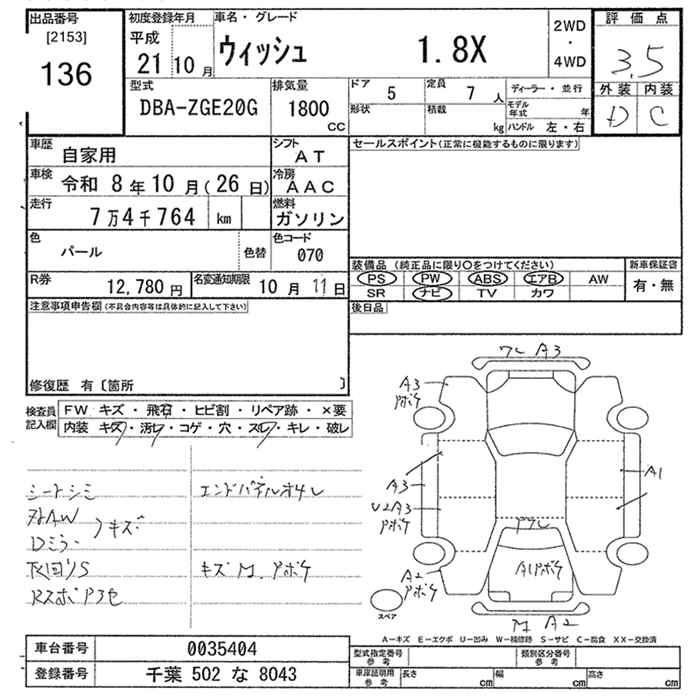 出品番号
[2153]
136
初度登録年月
平成
21 10 月
車名・グレード
ウィッシュ 1.8X
2WD
・
4WD
評価点
3.5
外装 内装
D C
型式
DBA-ZGE20G
排気量
1800
CC
ドア 5
定員 7 人
形状
積載 kg
ディーラー・並行
モデル年式 年
ハンドル 左・右
車歴
自家用
シフト
AT
セールスポイント(正常に機能するものに限ります)
車検 令和 8 年 10 月(26 日)
冷房
AAC
走行
7万4千764 km
燃料
ガソリン
色
パール
色替
色コード
070
R券
12,780 円
名変通知期限
10 月 11 日
装備品 (純正品に限り○をつけてください)
PS PW ABS エアB AW
SR ナビ TV カワ
新車保証書
有・無
注意事項申告欄(不具合内容等は具体的に記入して下さい)
後日品
修復歴 有〔箇所 〕
検査員記入欄
FW キズ・飛石・ヒビ割・リペア跡・×要
内装 キズ・汚レ・コゲ・穴・スレ・キレ・破レ
シートシミ
Dミラー キズ
エンドパネルオサレ
キズ M. アポケ
ワレ A3
A3
アポケ
A3
U2A3
アポケ
A2
アポケ
A1
ワレ
A1アポケ
M A2
スペア
A-キズ E-エクボ U-凹み W-補修跡 S-サビ C-腐食 XX-交換済
車台番号 0035404
登録番号 千葉 502 な 8043
型式指定番号
参考
類別区分番号
参考
車庫証明用
参考
長さ cm 幅 cm 高さ cm